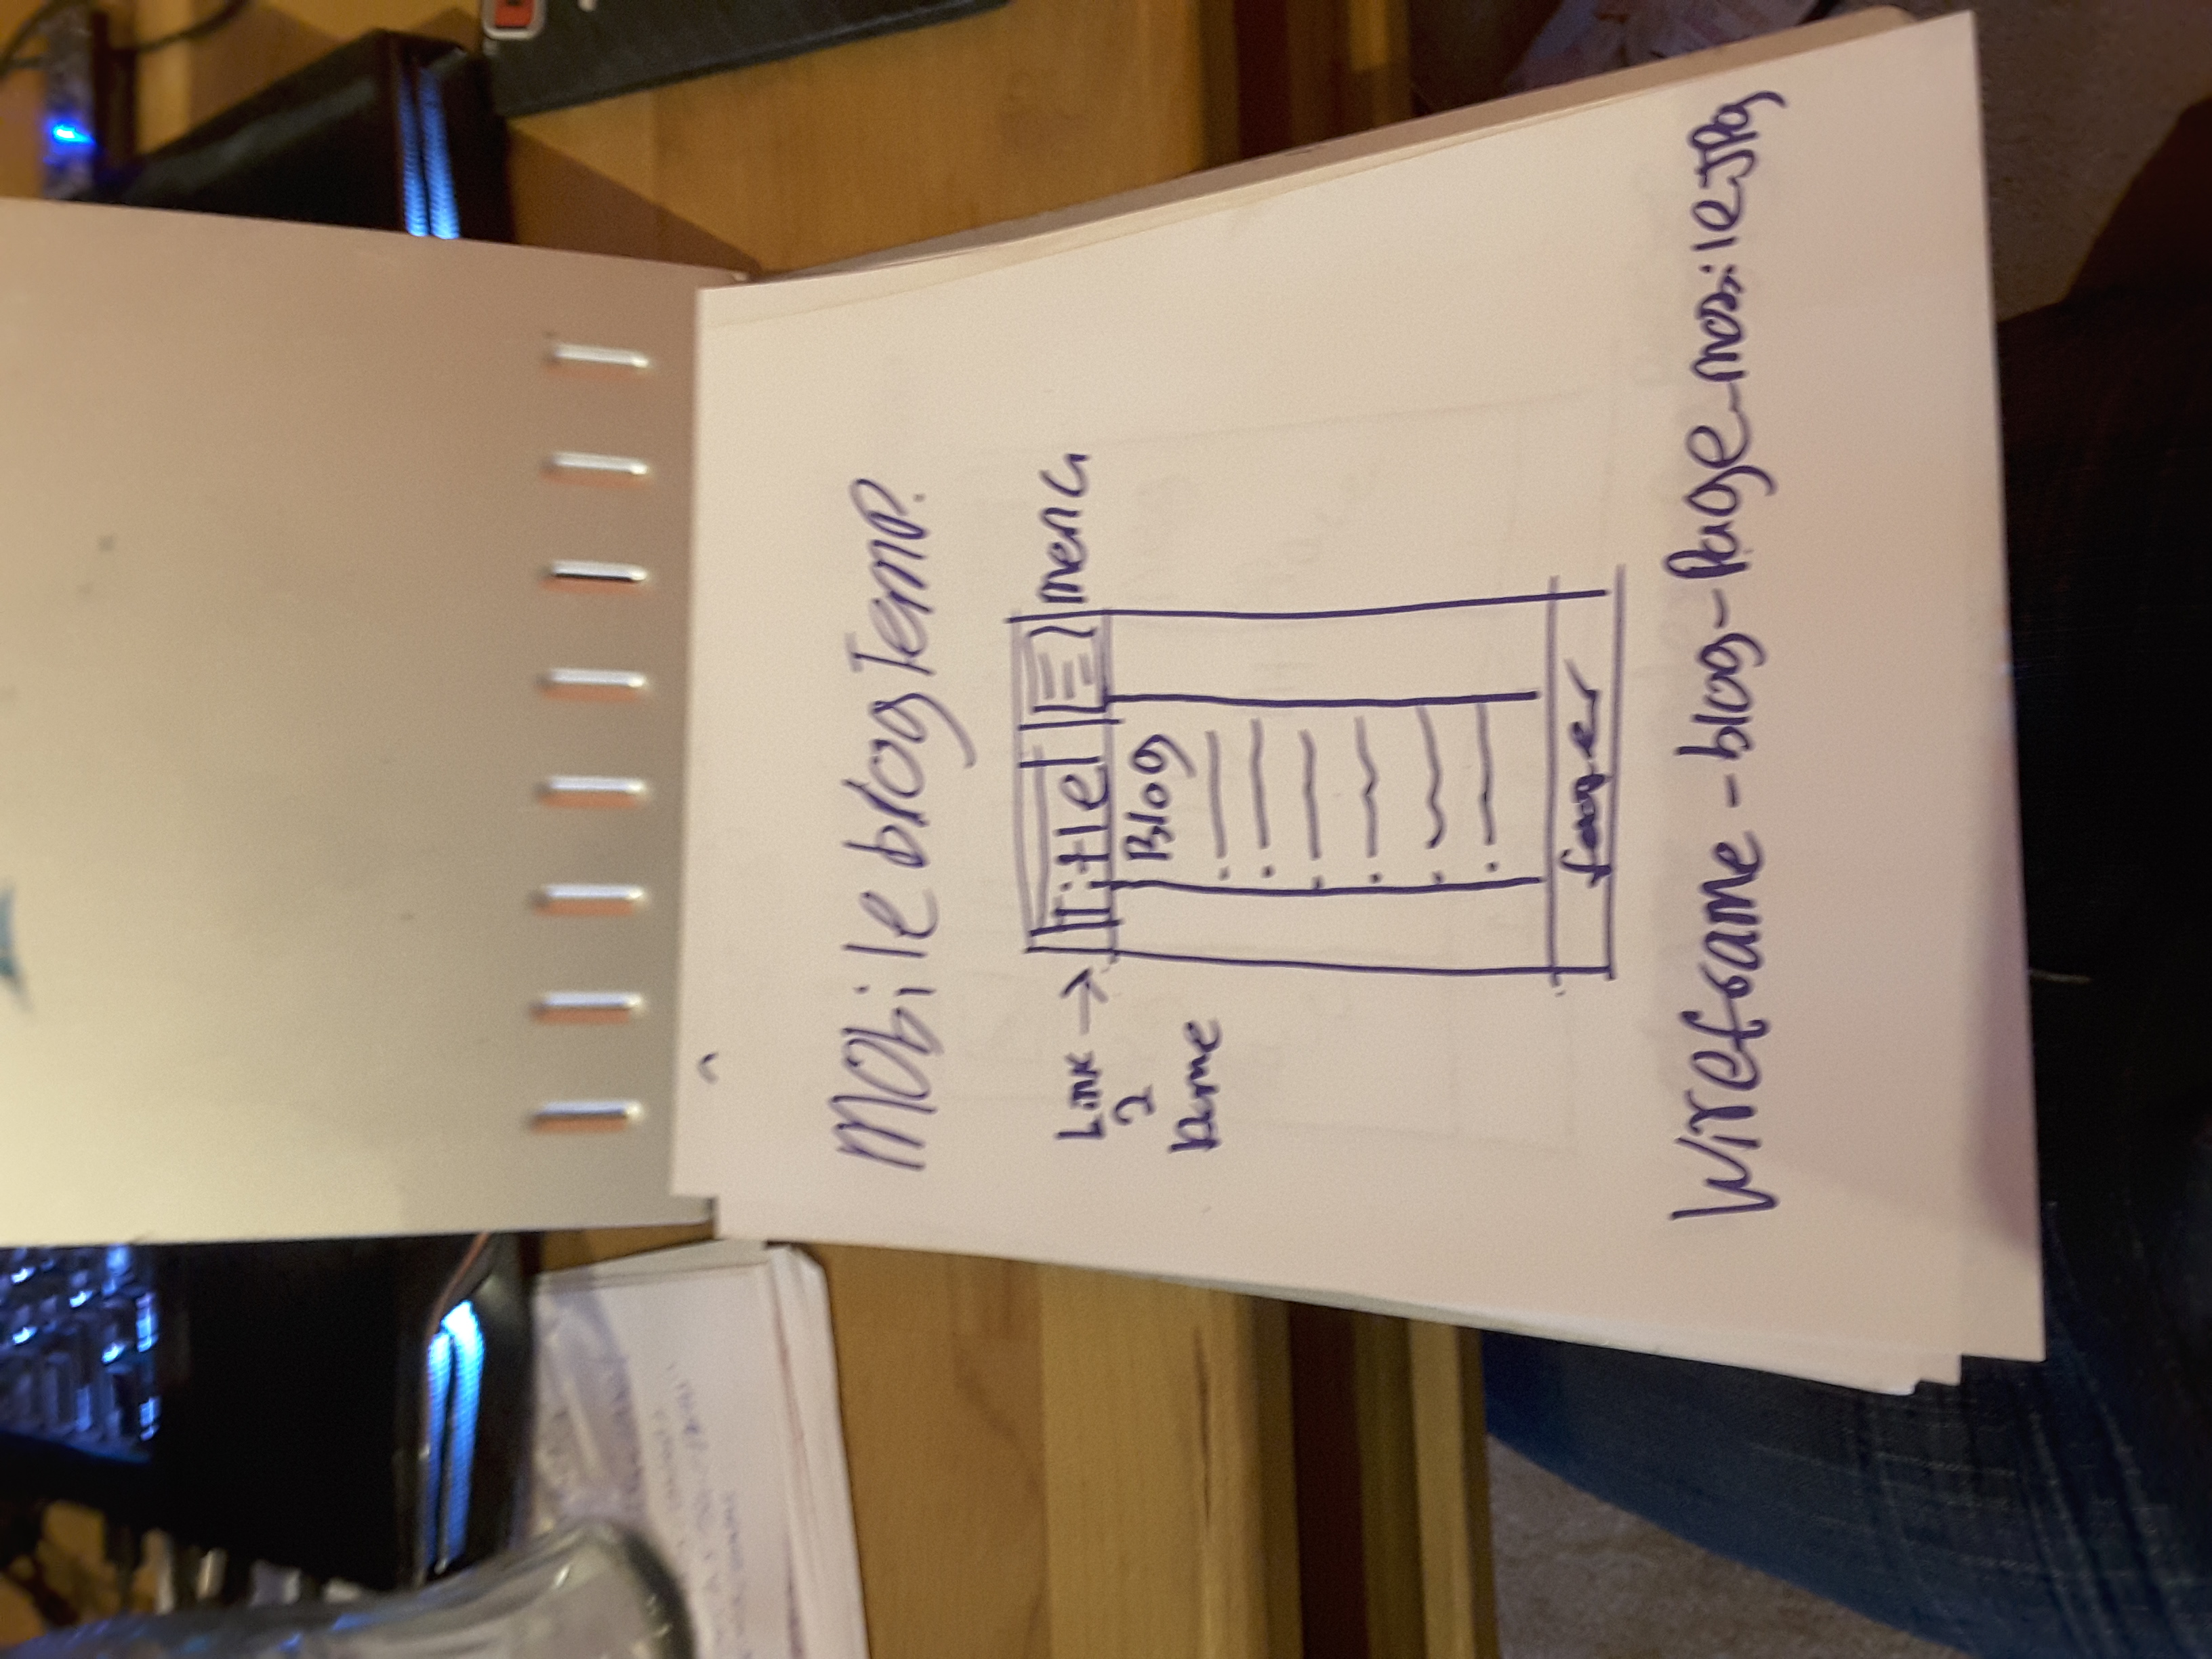 mobile blog Temp.
Link →
2
Home
Title
menu
Blog
footer
Wireframe-blog-Page-mobile.JPg